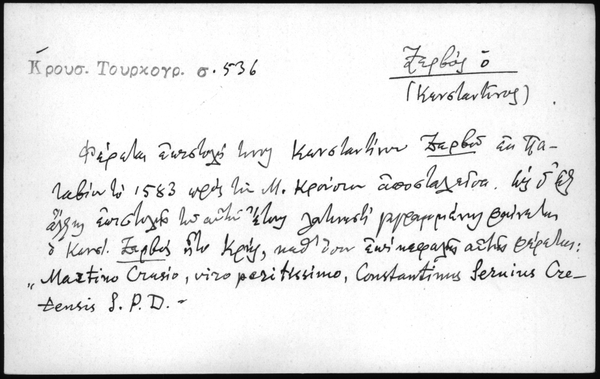 Κρουσ. Τουρκογρ. σ. 536
Ζερβός ὁ
(Κωνσταντῖνος)
Φέρεται ἐπιστολή τις Κωνσταντίνου Ζερβοῦ ἐκ Πα-
ταβίου τῷ 1583 πρὸς τὸν Μ. Κρούσιον ἀποσταλεῖσα. Ὡς δ' ἐξ
ἄλλης ἐπιστολῆς τοῦ αὐτοῦ ἔτους λατινιστὶ γεγραμμένης φαίνεται
ὁ Κωνστ. Ζερβὸς ἦτο Κρής, καθ' ὅσον ἐπὶ κεφαλῆς αὐτῆς φέρεται:
„Martino Crusio, viro peritissimo, Constantinus Servius Cre-
tensis S. P. D. -